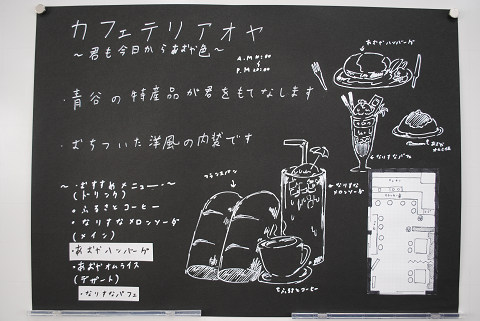 カフェテリアオヤ
～君も今日からあおや色～
A.M 10:00
～
P.M 20:00
・青谷の特産品が君をもてなします
・おちついた洋風の内装です
～・おすすめメニュー・～
(ドリンク)
・ふるさとコーヒー
・なりすなメロンソーダ
(メイン)
・あおやハンバーグ
・あおやオムライス
(デザート)
・なりすなパフェ
あおやハンバーグ
なりすなパフェ
あおや
オムライス
なりすな
メロンソーダ
フランスパン
ふるさとコーヒー